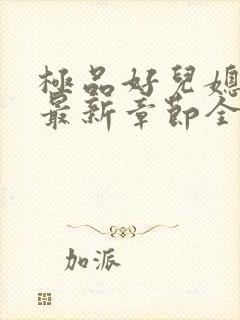 極品好兒媳
最新章節全
加派